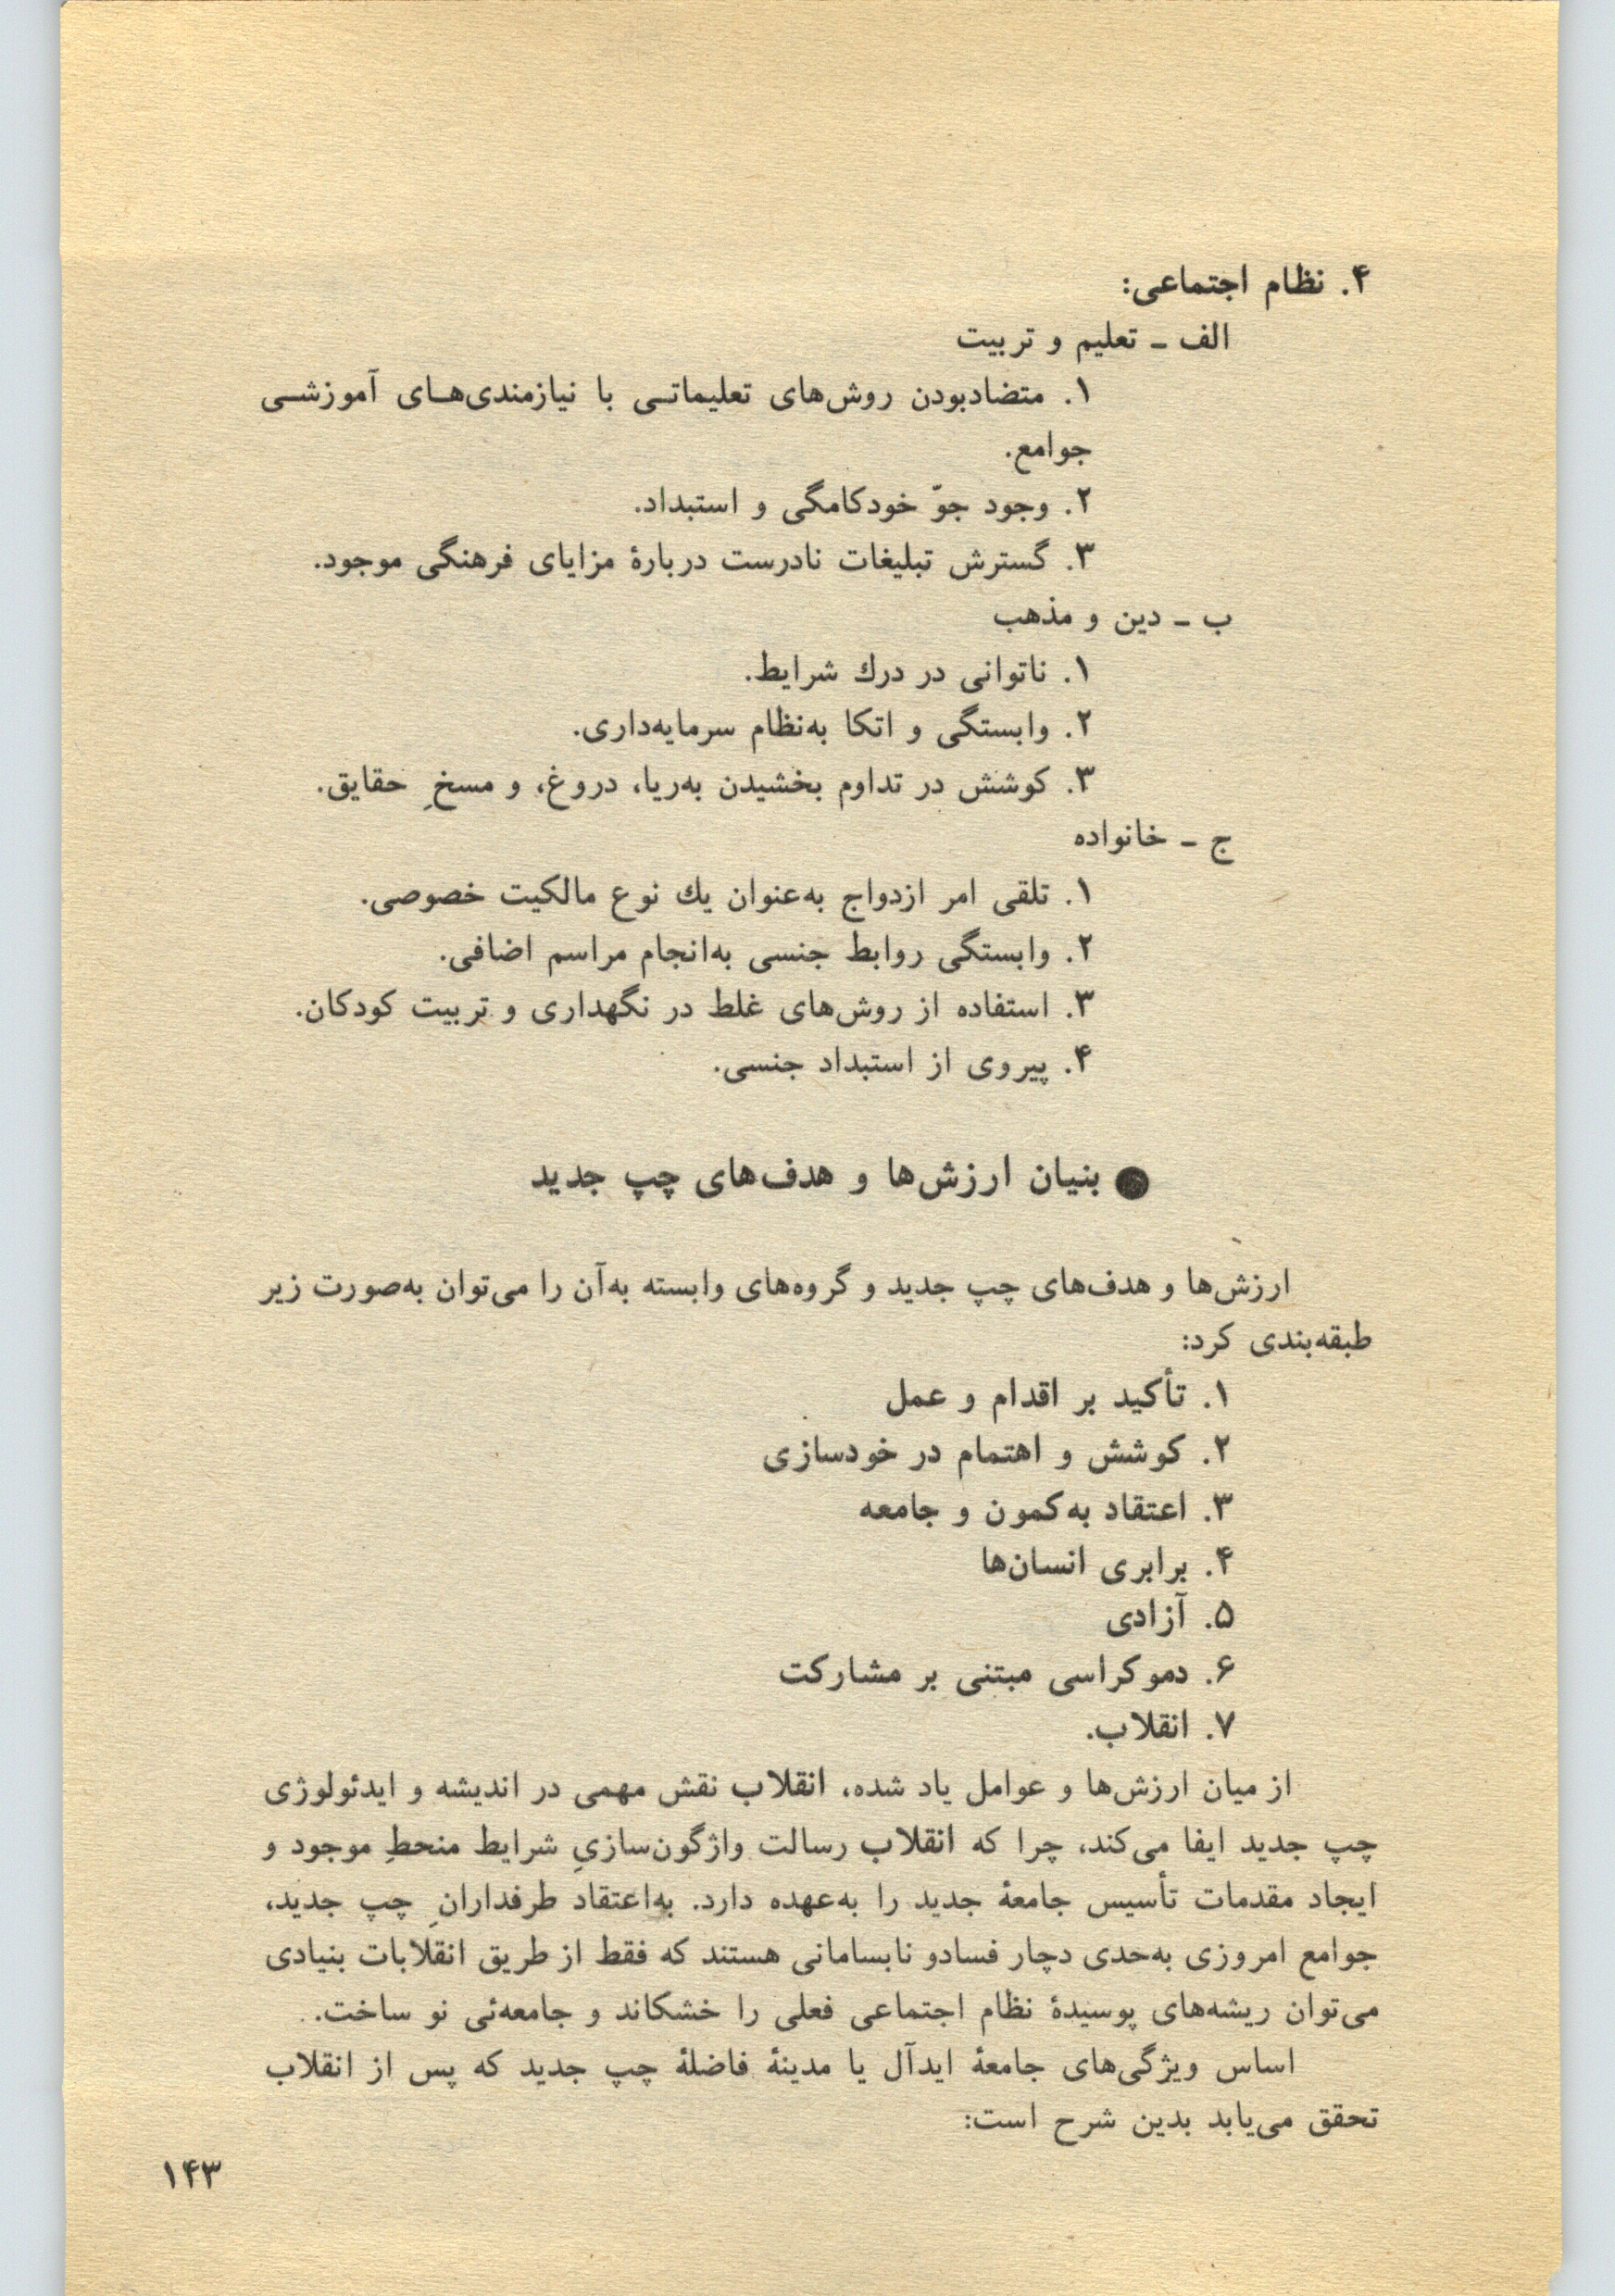 ۴. نظام اجتماعی:
الف ـ تعلیم و تربیت
۱. متضادبودن روش‌های تعلیماتـی با نیازمندی‌هـای آموزشـی
جوامع.
۲. وجود جوّ خودکامگی و استبداد.
۳. گسترش تبلیغات نادرست دربارهٔ مزایای فرهنگی موجود.
ب ـ دین و مذهب
۱. ناتوانی در درك شرایط.
۲. وابستگی و اتکا به‌نظام سرمایه‌داری.
۳. کوشش در تداوم بخشیدن به‌ریا، دروغ، و مسخِ حقایق.
ج ـ خانواده
۱. تلقی امر ازدواج به‌عنوان یك نوع مالکیت خصوصی.
۲. وابستگی روابط جنسی به‌انجام مراسم اضافی.
۳. استفاده از روش‌های غلط در نگهداری و تربیت کودکان.
۴. پیروی از استبداد جنسی.
● بنیان ارزش‌ها و هدف‌های چپ جدید
ارزش‌ها و هدف‌های چپ جدید و گروه‌های وابسته به‌آن را می‌توان به‌صورت زیر
طبقه‌بندی کرد:
۱. تأکید بر اقدام و عمل
۲. کوشش و اهتمام در خودسازی
۳. اعتقاد به‌کمون و جامعه
۴. برابری انسان‌ها
۵. آزادی
۶. دموکراسی مبتنی بر مشارکت
۷. انقلاب.
از میان ارزش‌ها و عوامل یاد شده، انقلاب نقش مهمی در اندیشه و ایدئولوژی
چپ جدید ایفا می‌کند، چرا که انقلاب رسالت واژگون‌سازیِ شرایط منحطِ موجود و
ایجاد مقدمات تأسیس جامعهٔ جدید را به‌عهده دارد. به‌اعتقاد طرفدارانِ چپ جدید،
جوامع امروزی به‌حدی دچار فسادو نابسامانی هستند که فقط از طریق انقلابات بنیادی
می‌توان ریشه‌های پوسیدهٔ نظام اجتماعی فعلی را خشکاند و جامعه‌ئی نو ساخت.
اساس ویژگی‌های جامعهٔ ایدآل یا مدینهٔ فاضلهٔ چپ جدید که پس از انقلاب
تحقق می‌یابد بدین شرح است:
۱۴۳